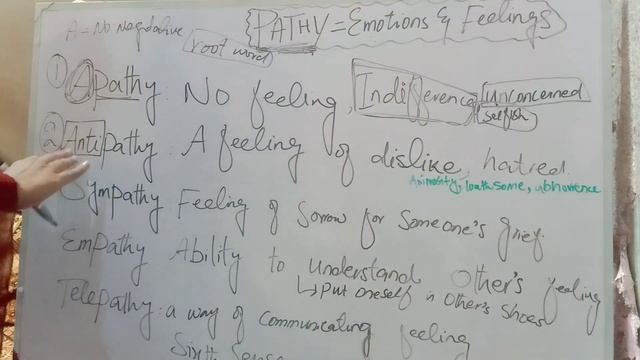 A - No negative
root word
PATHY = Emotions & Feelings
① Apathy No feeling, Indifference unconcerned
selfish
② Antipathy. A feeling of dislike, hatred.
Animosity, loathsome, abhorrence
Sympathy Feeling of sorrow for someone's grief.
Empathy Ability to understand Other's feeling
↳ put oneself in other's shoes
Telepathy: a way of communicating feeling
Sixth Sense